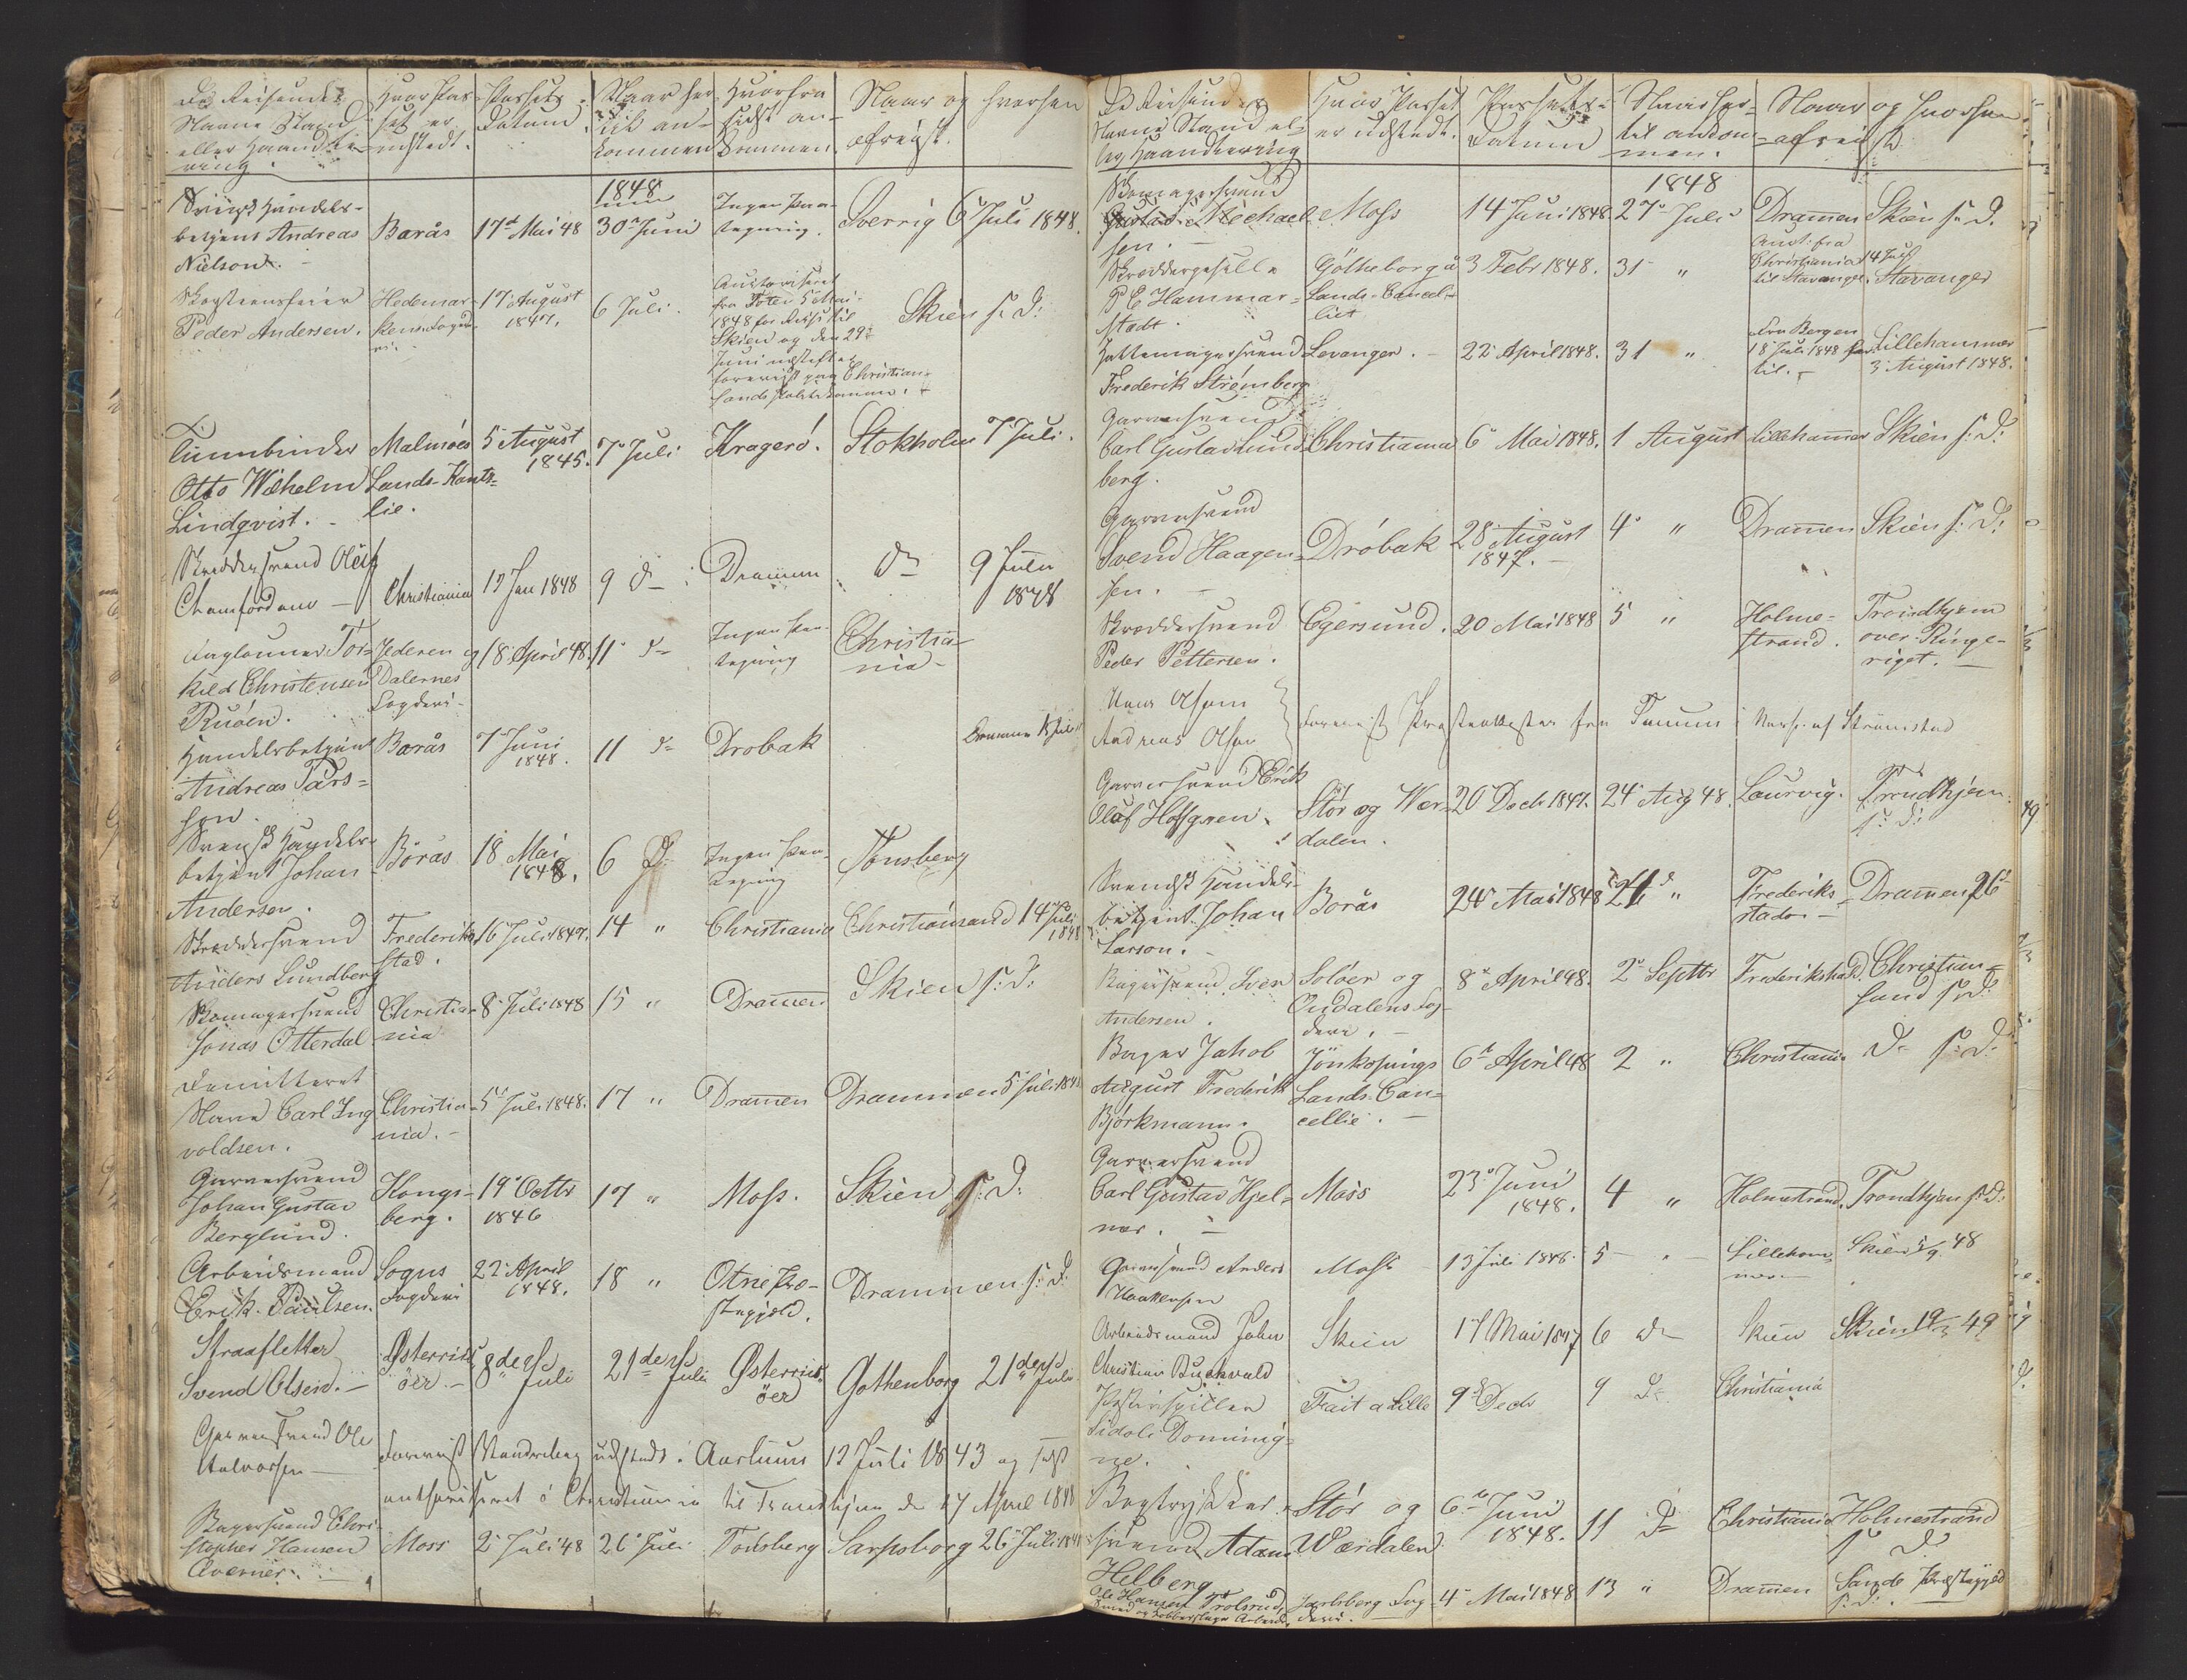 De Reisendes
Navne Stand
eller Haandte-
ring.
Hvor Pas-
set er
udstedt.
Passets
Datum.
Naar her-
til an-
kommen
Hvorfra
sidst an-
kommen.
Naar og hvorhen
afreist.
1848
Svensk Handels-
betjent Andreas
Nielson.
Borås
17d Mai 48
30 Juni
Ingen Paa-
tegning.
Sverrig 6 Juli 1848.
Skorsteensfeier
Peder Andersen.
Hedemar-
kens Fogde-
ri.
17 August
1847.
6 Juli.
fra Toten 5 Mai
1848 for Reise til
Skien og den 29
Juni næstefter
foreviist paa Christian-
sands Politikammer.
Skien s. D:
Tinnbinder
Otto Wilhelm
Lindqvist.
Malmöes
Lands-Kants-
lie.
5 August
1845.
7 Juli
Kragerö.
Stokholm 7 Juli.
Skreddersvend Oluf
Christiania
17 Jan 1848
9 d
Drammen
do
9 Juli
1848
Tor-
kild Christensen
Ruöen.
Jederen og
Dalernes
Fogderi
18 April 48.
11 d
Ingen Paa-
tegning
Christia-
nia
Handelsbetjent
Andreas Pärs-
son.
Borås
7 Juni
1848.
11 d
Drobak
Svensk Handels-
betjent Johan
Andersen.
Borås
18 Mai
1848.
6 D
Ingen Paa-
tegning
Tönsberg
Skreddersvend
Anders Lundberg
Frederik-
stad.
16 Juli 1847.
14 "
Christiania
Christiansand 14 Juli
1848
Skomagersvend
Jonas Otterdal
Christia-
nia
8 Juli 1848
15 "
Drammen
Skien s: D:
Demitteret
Slave Carl Ing
voldsen.
Christia-
nia.
5 Juli 1848.
17 "
Drammen
Drammen 5 Juli 1848
Garversvend
Johan Gustav
Berglund.
Kongs-
berg.
19 Octbr
1846
17 "
Moss.
Skien s: D:
Arbeidsmand
Erik Paulsen.
Sogns
Fogderi
22 April
1848.
18 "
Otne Præ-
stegjeld.
Drammen s: D:
Straafletter
Svend Olsen.
Österriis
öer
8de
Juli
21de
Juli
Österriis
öer
Gothenborg 21de Juli
Garversvend Ole
Halvorsen
foreviist Vandrebog udstedt i Aarhuus 12 Juli 1843 og sidst
i Christiania til Trondhjem d 17 April 1848
Bagersvend Chri-
stopher Hansen
Averner.
Moss
2 Juli 48
26 Juli
Tönsberg
Sarpsborg 26 Juli 1848
De Reisendes
Navne Stand el-
ler Haandtering
Hvor Passet
er udstedt.
Passets
Datum
Naar her-
til ankom-
men.
Naar og hvorhen
afreist
1848
Skomagersvend
Gustav Michael-
sen.
Moss
14 Juni 1848.
27 Juli
Drammen
Skien s: D.
Skreddergeselle
P E Hammar-
stedt.
Götheborgs
Lands-Cancel-
liet
3 Febr 1848.
31 "
fra
Christiania 14 Juli
til Stavanger.
Stavanger
Hattemagersvend
Frederik Strömberg
Levanger.
22 April 1848.
31 "
fra Bergen
18 Juli 1848 her-
til.
Lillehammer
3 August 1848.
Garversvend
Carl Gustav Lund-
berg.
Christiania
6 Mai 1848.
1 August
Lillehammer
Skien s: D:
Garversvend
Svend Haagen-
sen.
Dröbak
28 August
1847.
4 "
Drammen
Skien s: D:
Skreddersvend
Peder Pettersen.
Egersund.
20 Mai 1848
5 "
Holme-
strand.
Trondhjem
over Ringe-
riget.
Hans Olsen
Andreas Olsen
foreviist Præsteattester fra Tanum i Nærh. af Strömstad
Garversvend Erik
Oluf Hofgren.
Stör og Wær-
dalen.
20 Decbr 1847.
24 Aug 48.
Laurvig.
Trondhjem
s: D:
Svendsk Handels-
betjent Johan
Larson.
Borås
24 Mai 1848
Frederik-
stad
Drammen 26
Bagersvend Sven
Andersen.
Solöer og
Oudalens Fog-
deri.
8 April 48.
2 Septbr
Frederikshald.
Christian-
sand s: D:
Bager Jakob
August Frederik
Björkmann.
Jönkopings
Lands-Can-
cellie.
6 April 48
2 "
Christiania
d s: D.
Garversvend
Carl Gustav Hjel-
mer.
Moss
23 Juni
1848.
4 "
Holmestrand.
Trondhjem s: D:
Garversvend Anders
Haakensen
Moss
13 Juli 1848.
5 "
Lilleham-
mer
Skien 5/9 48
Arbeidsmand John
Christian Buchwald
Skien
17 Mai 1847
6 d
Skien
Skien 19/3 49
Sidoli Doming-
ne.
Fait a Lille
9 Decb
9 d
Christiania
Bogtrykker-
svend Adam
Helberg
Stör og
Wærdalen
6 Juni
1848.
11 D
Christiania
Holmestrand
s D
Ole Hansen Trolsrud
Smed og Kobberslager Arbeide
Jarlsberg Fog-
deri.
4 Mai 1848
13 "
Drammen
Sande Præstegjeld
s: D: